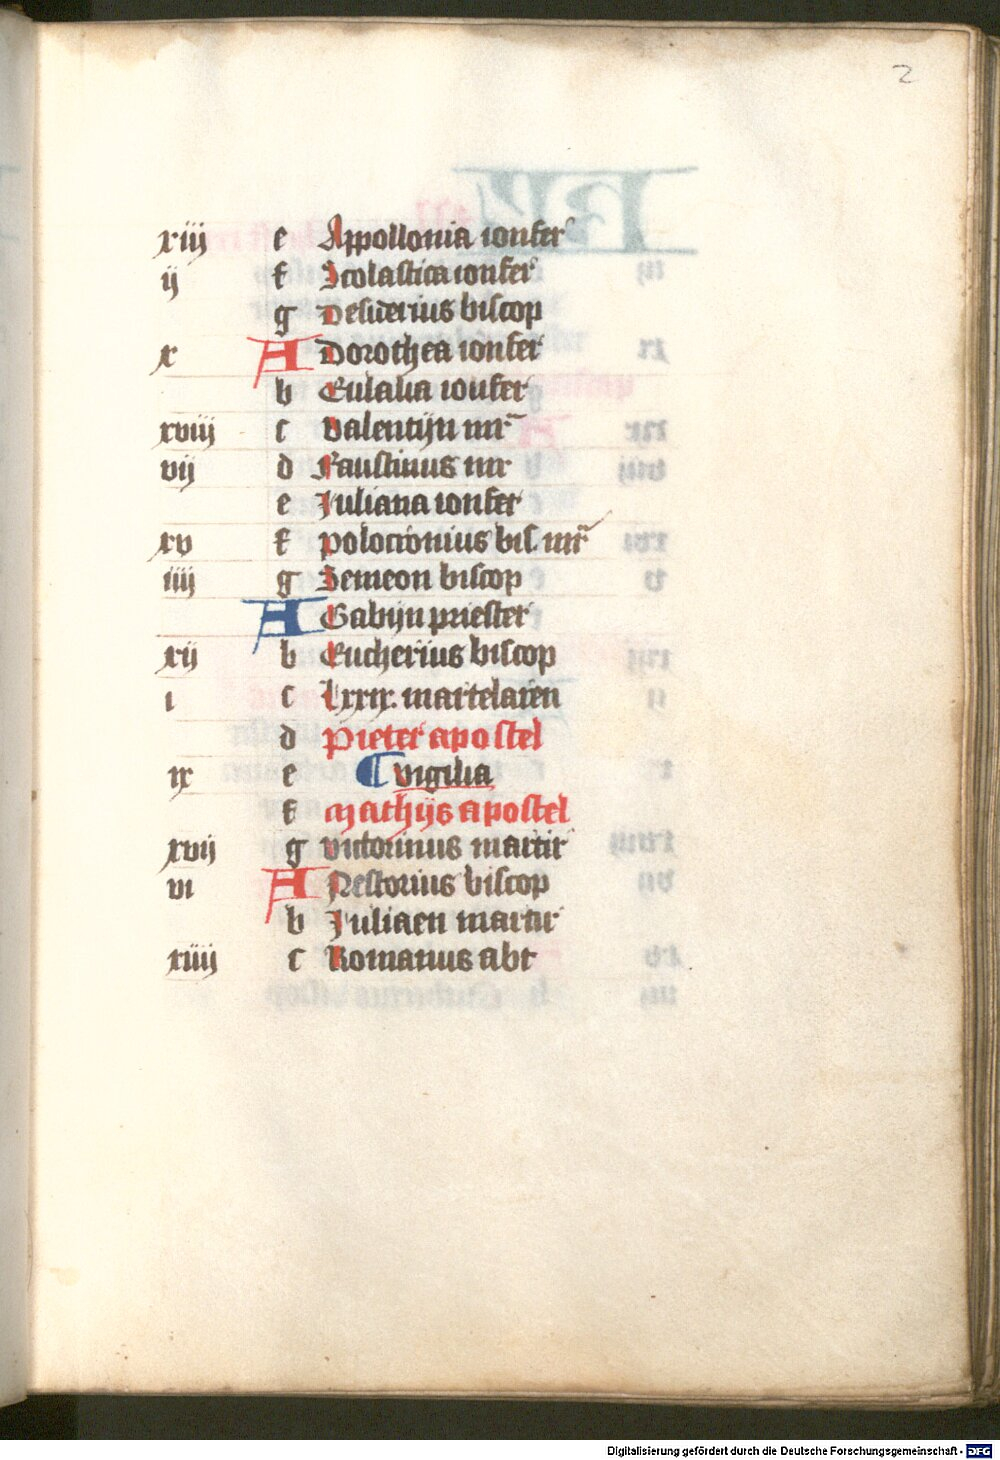 2
xiij e Appollonia ionfer
ij f Scolastica ionfer
g Desiderius biscop
x A Dorothea ionfer
b Eulalia ionfer
xviij c Valentijn mr
vij d Faustinus mr
e Juliana ionfer
xv f polocronius bis. mr
iiij g Semeon biscop
A Gabijn priester
xij b Eucherius biscop
i c Lxxix. martelaren
d Pieter apostel
ix e vigilia
f Mathijs apostel
xvij g victorinus martir
vi A Nestorius biscop
b Juliaen martir
xiiij c Romanus abt
Digitalisierung gefördert durch die Deutsche Forschungsgemeinschaft - DFG